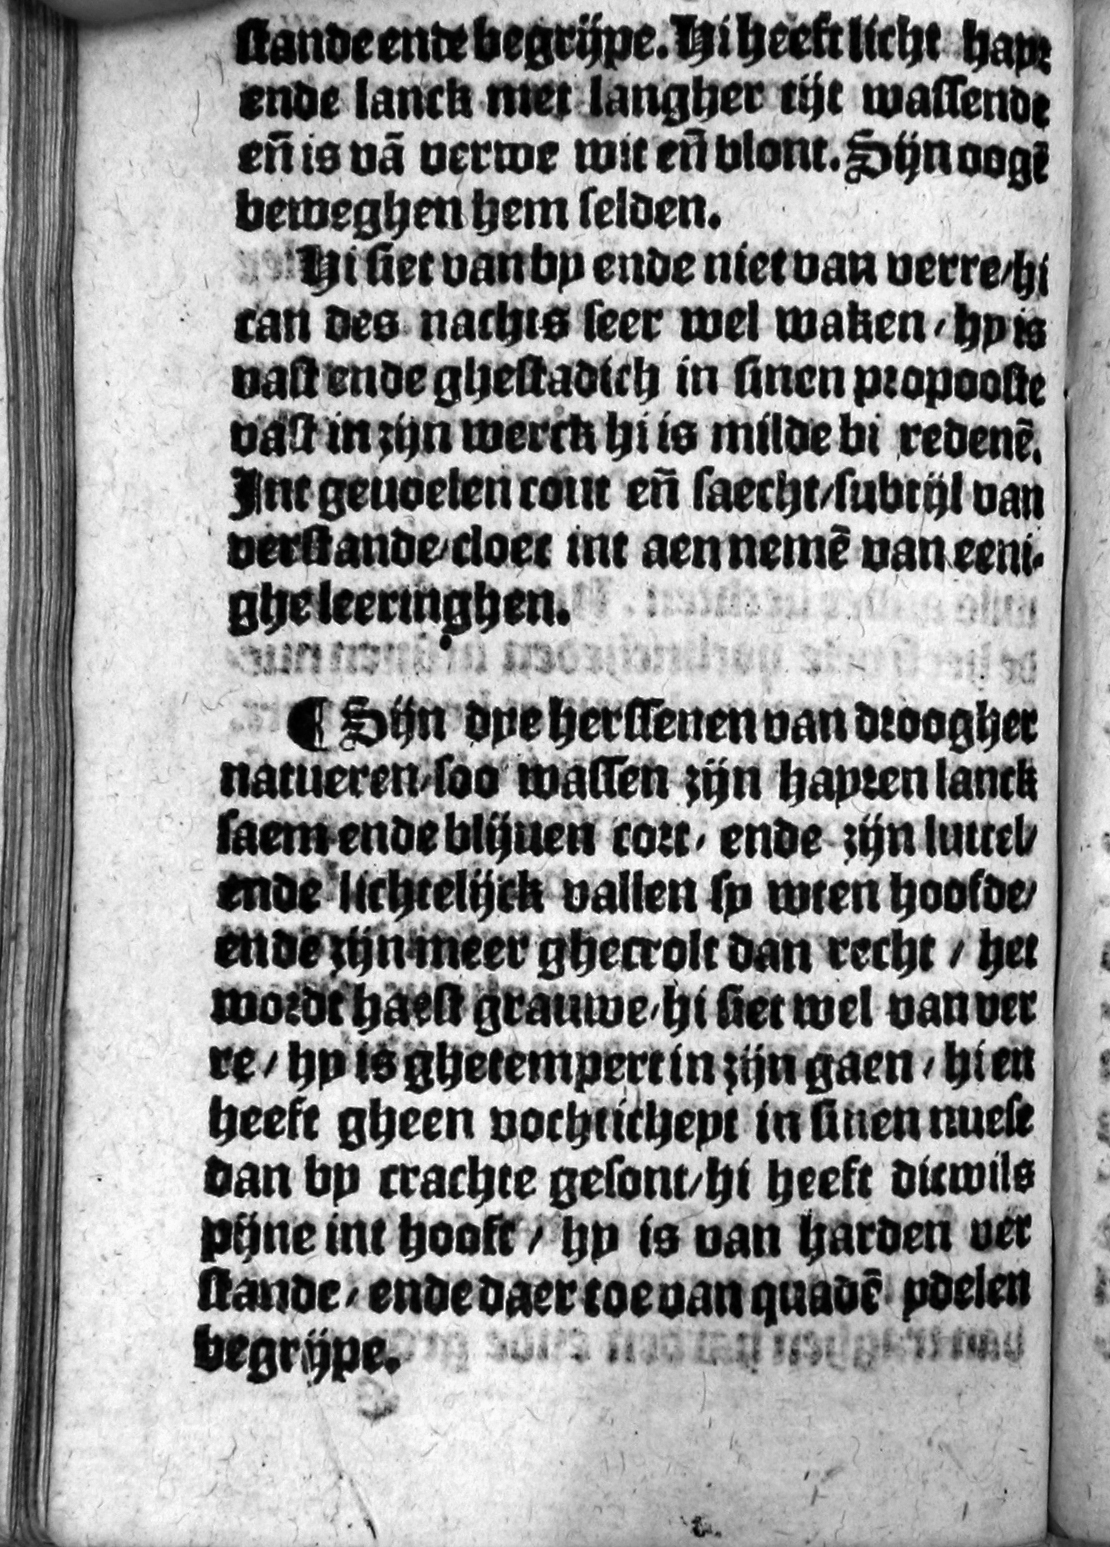 stande ende begrijpe. Hi heeft licht hayr
ende lanck met langher tijt wassende
en̄ is vā verwe wit en̄ blont. Sijn oogē
beweghen hem selden.
Hi siet van by ende niet van verre/hi
can des nachts seer wel waken/hy is
vast ende ghestadich in sinen propooste
vast in zijn werck hi is milde bi redenē.
Int geuoelen cout en̄ saecht/subtijl van
verstande/cloec int aen nemē van eeni-
ghe leeringhen.
¶ Sijn dye herssenen van droogher
natueren/soo wassen zijn hayren lanck
saem ende blijuen cort/ ende zijn luttel/
ende lichtelijck vallen sy wten hoofde/
ende zijn meer ghecrolt dan recht / het
wordt haest grauwe/hi siet wel van ver
re/ hy is ghetempert in zijn gaen/ hi en
heeft gheen vochticheyt in sinen nuese
dan by crachte gesont/hi heeft dicwils
pijne int hooft/ hy is van harden ver
stande/ ende daer toe van quadē ydelen
begrijpe.